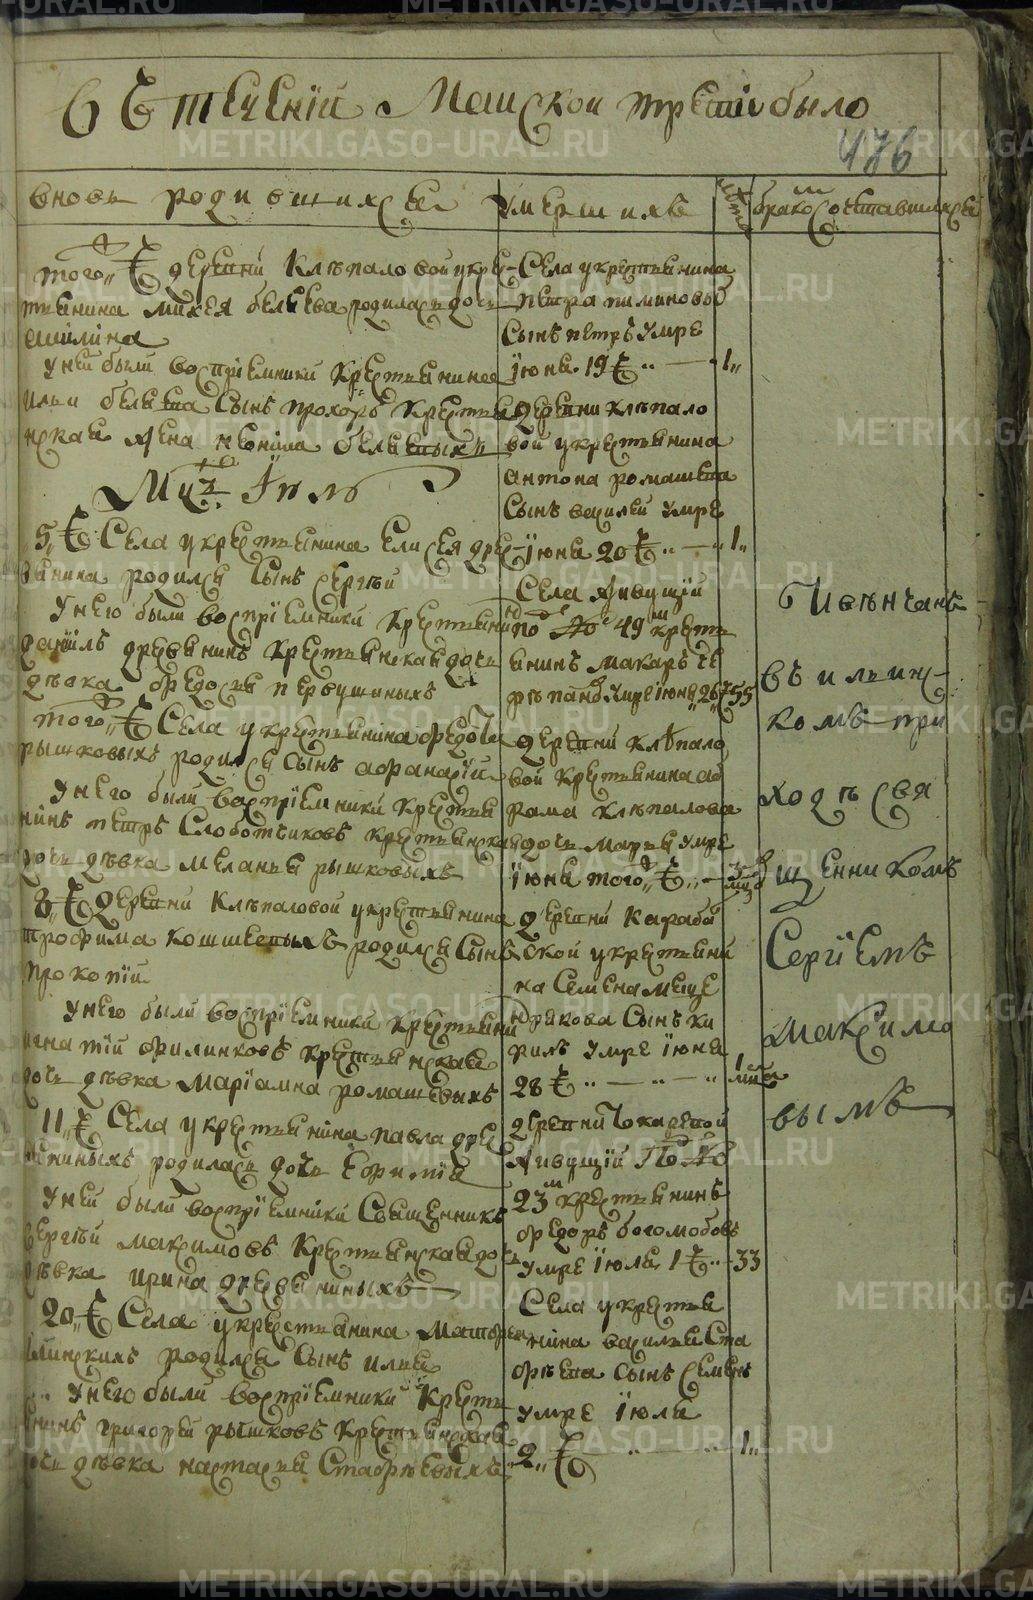 в течении Маиской трети было
476
вновь родившихсе
того ж деревни Клепаловой у кре
стьянина Михея Беляева родилась дочь
Акилина
у ней были восприемники крестьянина
Ильи Беляева сынъ Прохоръ крестья
нская жена Неонила Беляевыхъ
Мцъ Июль
5 ж Села у крестьянина Елисея Дре
вянина родился сынъ Сергей
у него были восприемники крестьянинъ
Даниилъ Древнинъ крестьянская дочь
девка Федосья Первушиныхъ
того ж Села у крестьянина Федота
Рышковыхъ родился сынъ Афанасий
у него были восприемники крестья
нинъ Петръ Слоботчиковъ крестьянска
дочь девка Меланья Рышковыхъ
8 ж деревни Клепаловой у крестьянина
Трофима Кошшевыхъ родился сынъ
Прокопий
у него были восприемники крестьянинъ
Игнатий Филинковъ крестьянская
дочь девка Мариамна Ромашевыхъ
11 ж Села у крестьянина Павла Дре
вниныхъ родилась дочь Ефимия
у ней были восприемники священникъ
Сергей Максимовъ крестьянская дочь
девка Ирина Древниныхъ
20 ж Села у крестьянина Матфея
Илинскихъ родился сынъ Илия
у него были восприемники кресть
янинъ Григорей Рышковъ крестьянская
дочь девка Настасья Стафеевыхъ
умершихъ
Села у крестьянина
Петра Пиминова
сынъ Петръ умре
июня 19 ж 1
деревни Клепало
вой у крестьянина
Антона Ромашева
сынъ Василей умре
июня 20 ж 1
Села живущий
по 49 м крестъ
янинъ Макаръ Че
репановъ умре июня 26 ж 55
деревни Клепало
вой крестьянина Ав
рама Клепалова
дочь Марья умре
июня того ж 3
деревни Караба
ской у крестьяни
на Семена Меще
рякова сынъ Ки
рилъ умре июня
28 ж 1
деревни Токаревой
живущий по
23 м крестьянинъ
Федоръ Богомоловъ
умре июля 1 ж 33
Села у крестья
нина Василья Ста
феева сынъ Семенъ
умре июля
2 ж 1
лета
бракосочетавшихся
И венчанъ
въ Ильинс
комъ при
ходъ свя
щенникомъ
Сергиемъ
Максимо
вымъ
METRIKI.GASO-URAL.RU